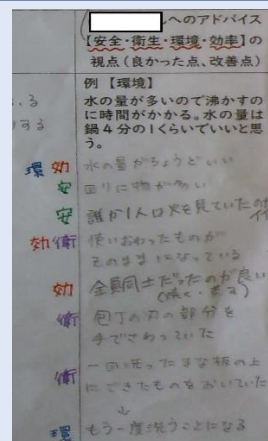 へのアドバイス
【安全・衛生・環境・効率】の
視点（良かった点、改善点）
例 【環境】
水の量が多いので沸かすの
に時間がかかる。水の量は
鍋４分の１くらいでいいと思
う。
いる
する
環 効 水の量がちょうどいい
安 回りに物が多い
安 誰か1人は火を見ていたの
効 衛 使いおわったものが
そのままになっている
効 全員同士だったのが良い
衛 包丁の刃の部分を
手でさわっていた
衛 一回洗ったまな板の上
にできたものをおいていた
↓
環 もう一度洗うことになる